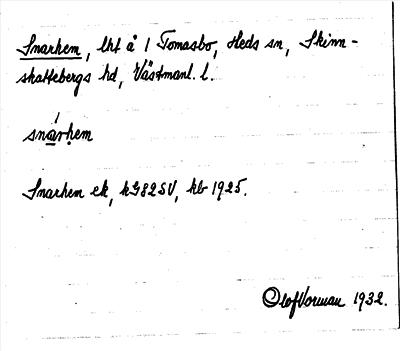 Snarhem, lht å 1 Tomasbo, Heds sn, Skinn-
skattebergs hd, Västmanl. l.
snárhem
Snarhem ek, kG82SV, kb 1925.
Olof Vorman 1932.